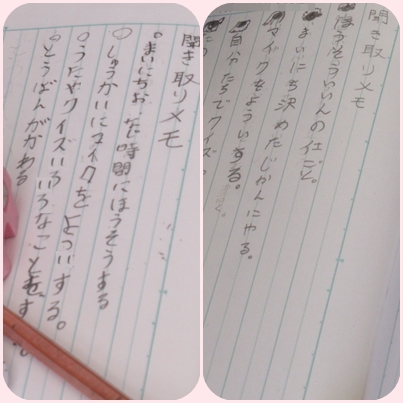 聞き取りメモ
。まいにちおなじ時間にほうそうする
○しゅうかいにマイクを
。うたやクイズいろいろなことをする。
。とうばんがある
聞き取りメモ
ほうそういいんの仕ごと。
まいにち決めたじかんにやる。
マイクをよういする。
自分たちでクイズ